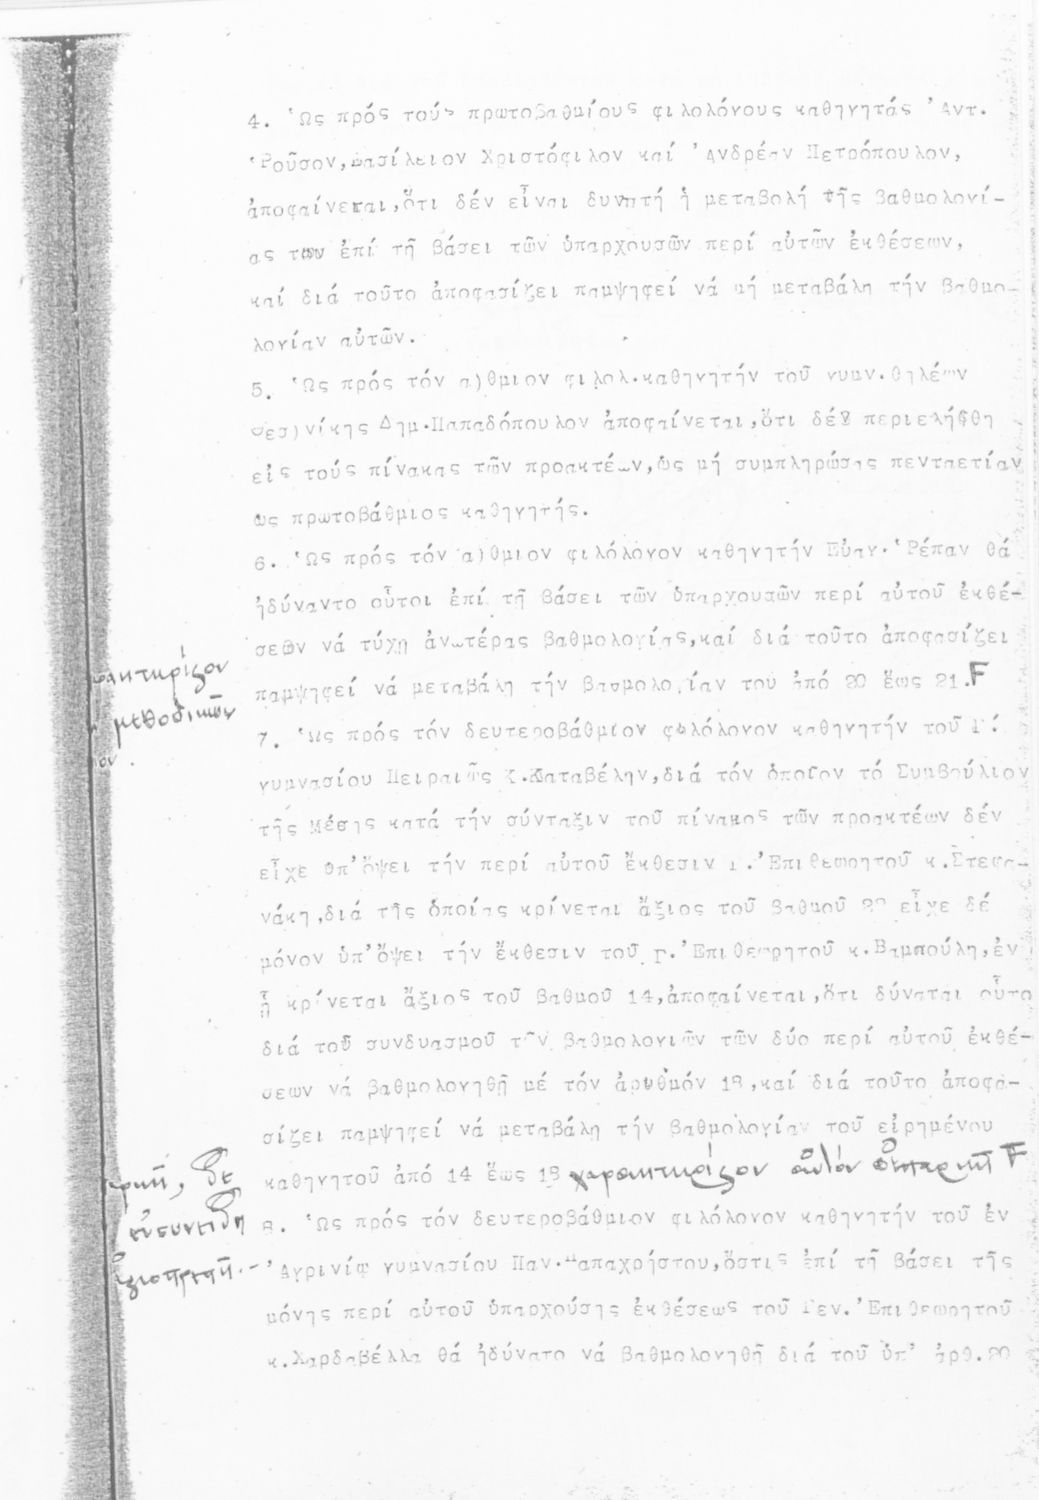 4. Ὡς πρός τούς πρωτοβαθμίους φιλολόγους καθηγητάς Ἀντ.
Ῥοῦσον, Βασίλειον Χριστόφιλον καί Ἀνδρέαν Πετρόπουλον,
ἀποφαίνεται, ὅτι δέν εἶναι δυνατή ἡ μεταβολή τῆς βαθμολογί-
ας των ἐπί τῇ βάσει τῶν ὑπαρχουσῶν περί αὐτῶν ἐκθέσεων,
καί διά τοῦτο ἀποφασίζει παμψηφεί νά μή μεταβάλη τήν βαθμο-
λογίαν αὐτῶν.
5. Ὡς πρός τόν α)θμιον φιλολ. καθηγητήν τοῦ γυμν. θηλέων
Θεσ)νίκης Δημ. Παπαδόπουλον ἀποφαίνεται, ὅτι δέν περιελήφθη
εἰς τούς πίνακας τῶν προακτέων, ὡς μή συμπληρώσας πενταετίαν
ως πρωτοβάθμιος καθηγητής.
6. Ὡς πρός τόν α)θμιον φιλόλογον καθηγητήν Εὐαγ. Ῥέπαν θά
ἠδύναντο οὗτοι ἐπί τῇ βάσει τῶν ὑπαρχουσῶν περί αὐτοῦ ἐκθέ-
σεων νά τύχῃ ἀνωτέρας βαθμολογίας, καί διά τοῦτο ἀποφασίζει
παμψηφεί νά μεταβάλη τήν βαθμολογίαν του ἀπό 20 ἕως 21. Γ
μεθοδικῶν
7. Ὡς πρός τόν δευτεροβάθμιον φιλόλογον καθηγητήν τοῦ Γ΄.
γυμνασίου Πειραιῶς Κ. Καταβέλην, διά τόν ὁποῖον τό Συμβούλιον
τῆς Μέσης κατά τήν σύνταξιν τοῦ πίνακος τῶν προακτέων δέν
εἶχε ὑπ' ὄψει τήν περί αὐτοῦ ἔκθεσιν Γ. Ἐπιθεωρητοῦ κ. Στεφα-
νάκη, διά τῆς ὁποίας κρίνεται ἄξιος τοῦ βαθμοῦ 22 εἶχε δέ
μόνον ὑπ' ὄψει τήν ἔκθεσιν τοῦ Γ. Ἐπιθεωρητοῦ κ. Βαμπούλη, ἐν
ᾗ κρίνεται ἄξιος τοῦ βαθμοῦ 14, ἀποφαίνεται, ὅτι δύναται οὗτο
διά τοῦ συνδυασμοῦ τῶν βαθμολογιῶν τῶν δύο περί αὐτοῦ ἐκθέ-
σεων νά βαθμολογηθῇ μέ τόν ἀριθμόν 18, καί διά τοῦτο ἀποφα-
σίζει παμψηφεί νά μεταβάλη τήν βαθμολογίαν τοῦ εἰρημένου
καθηγητοῦ ἀπό 14 ἕως 18 χαρακτηρίζον αὐτόν ἐπαρκῆ Γ
8. Ὡς πρός τόν δευτεροβάθμιον φιλόλογον καθηγητήν τοῦ ἐν
Ἀγρινίῳ γυμνασίου Παν. Παπαχρήστου, ὅστις ἐπί τῇ βάσει τῆς
μόνης περί αὐτοῦ ὑπαρχούσης ἐκθέσεως τοῦ Γεν. Ἐπιθεωρητοῦ
κ. Χαρδαβέλλα θά ἠδύνατο νά βαθμολογηθῇ διά τοῦ ὑπ' ἀρθ. 20